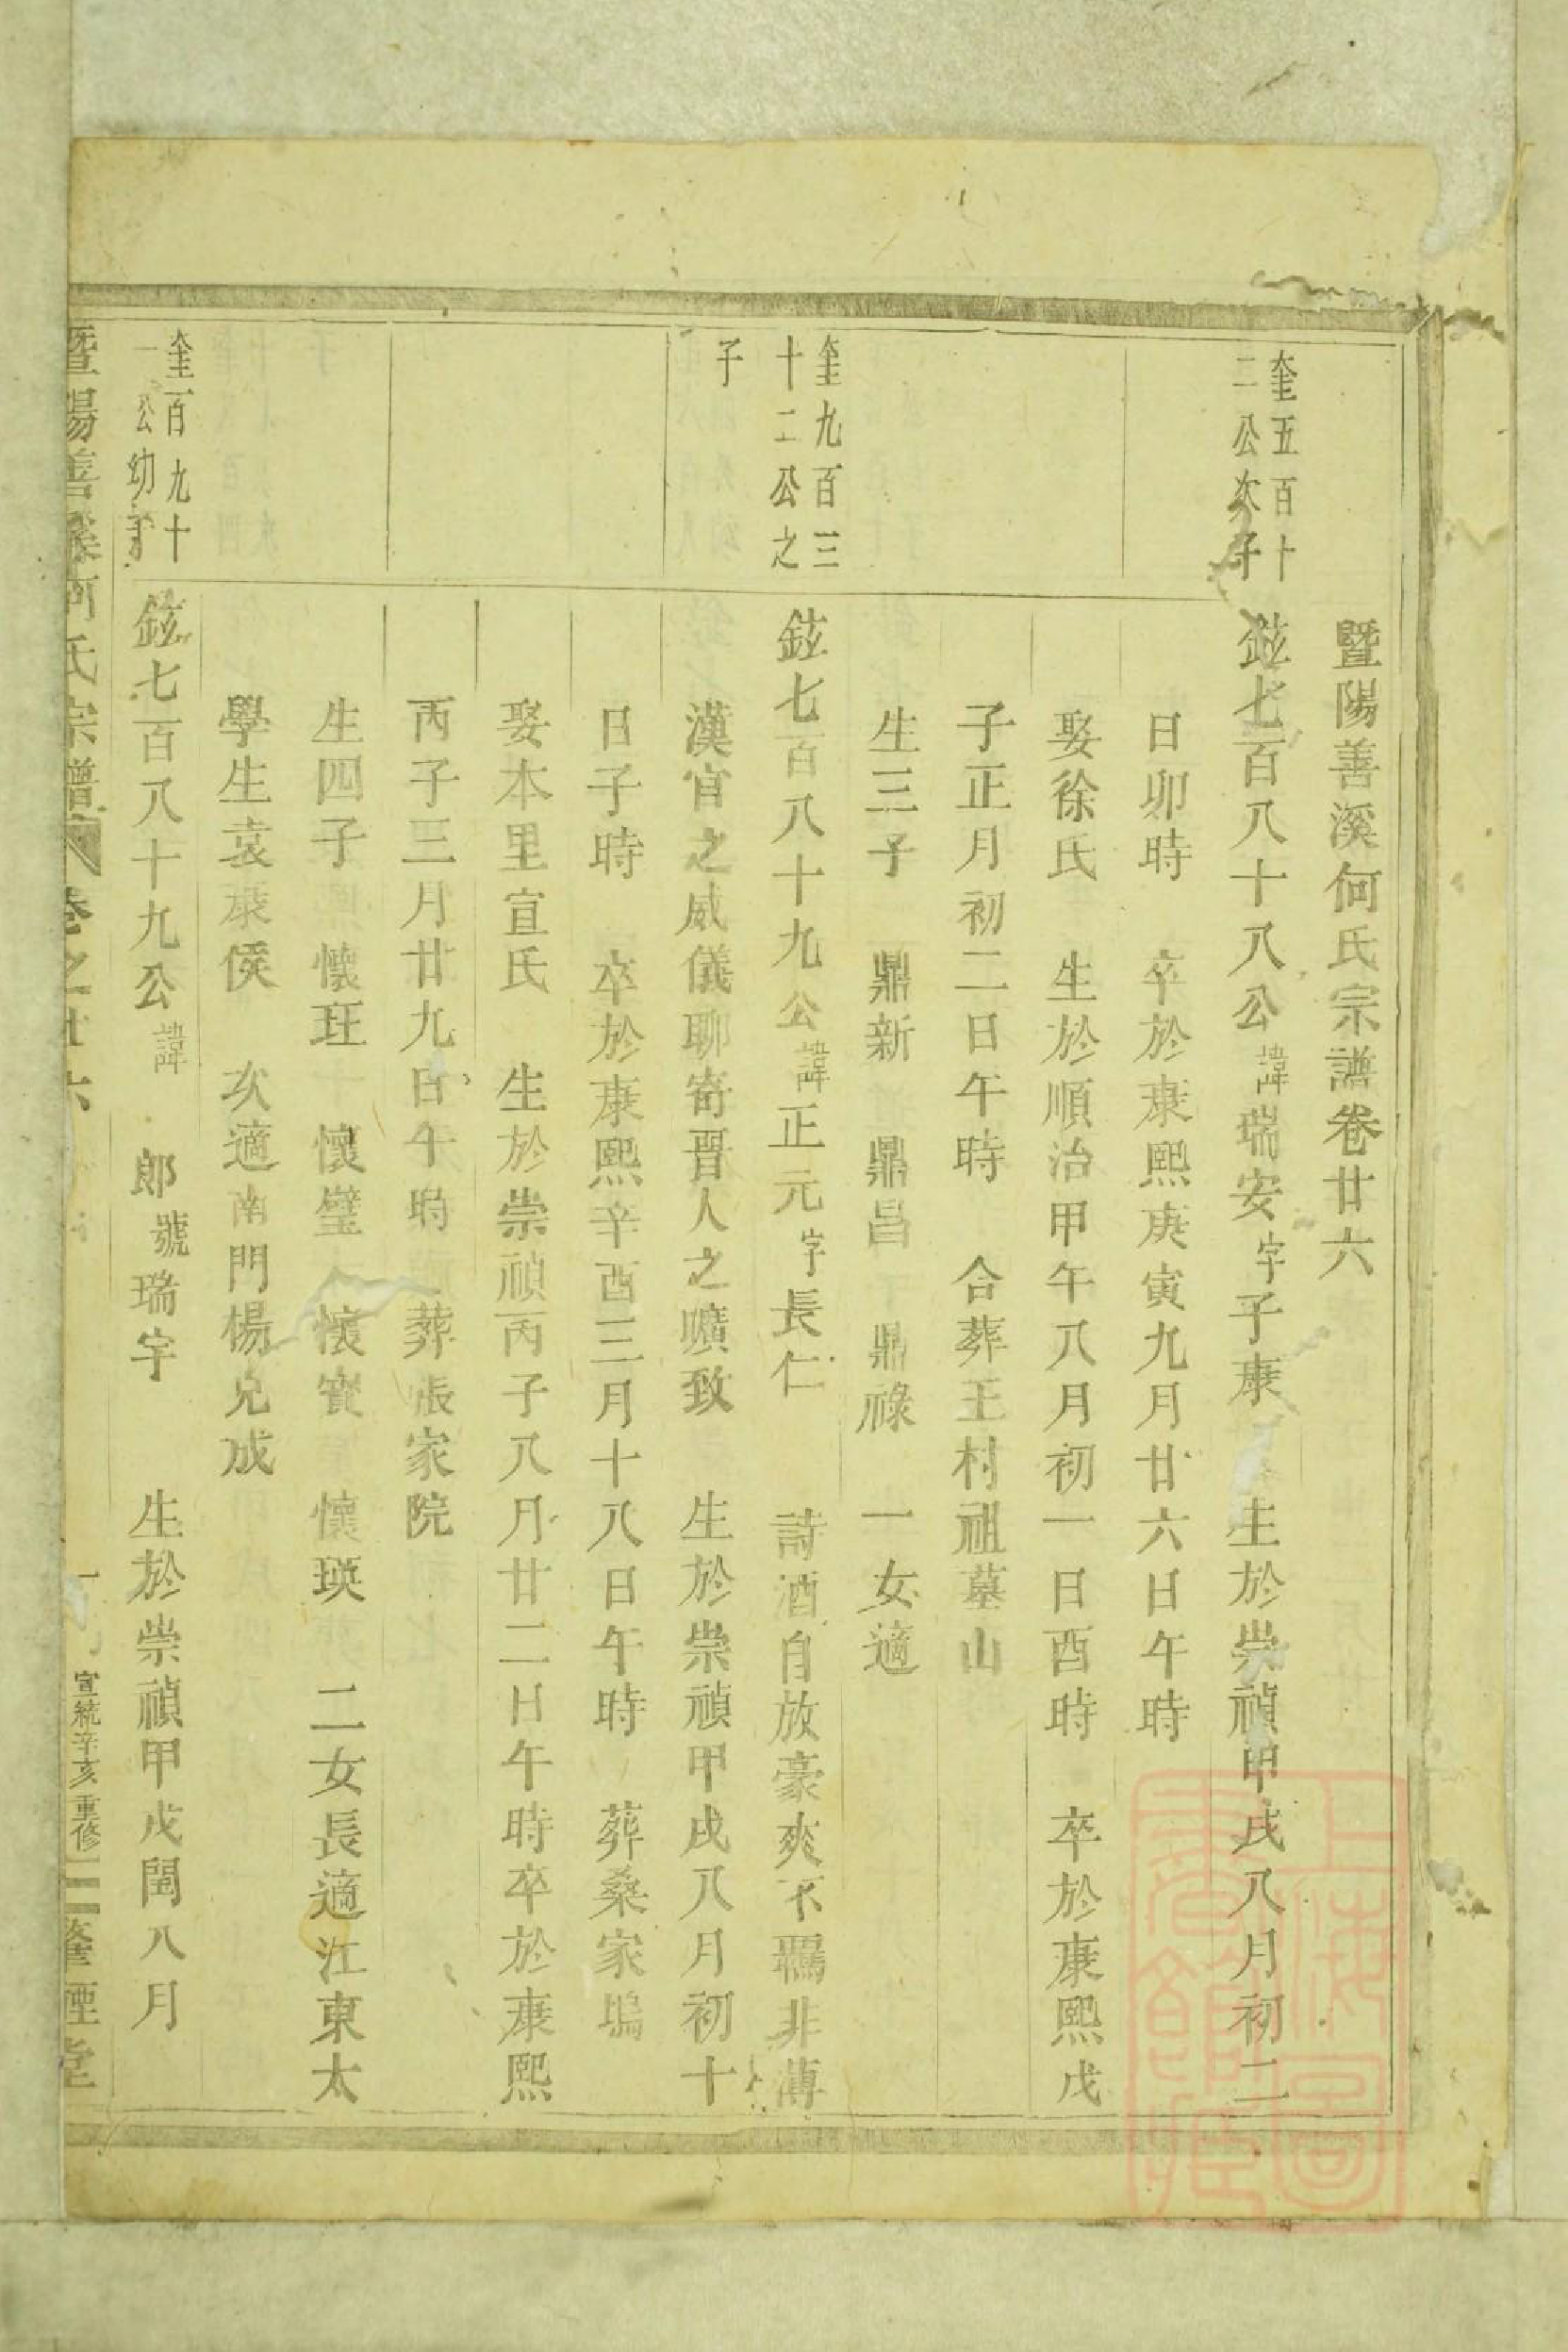 暨陽善溪何氏宗譜卷廿六
奎五百十
二公次子
鉉七百八十八公諱瑞安字子康 生於崇禎甲戌八月初二
日卯時 卒於康熙庚寅九月廿六日午時
娶徐氏 生於順治甲午八月初一日酉時 卒於康熙戊
子正月初二日午時 合葬王村祖墓山
生三子 鼎新 鼎昌 鼎祿 一女適
奎九百三
十二公之
子
鉉七百八十九公諱正元字長仁 詩酒自放豪爽不羈非薄
漢官之威儀聊寄晋人之曠致 生於崇禎甲戌八月初十
日子時 卒於康熙辛酉三月十八日午時 葬桑家塢
娶本里宣氏 生於崇禎丙子八月廿二日午時卒於康熙
丙子三月廿九日午時 葬張家院
生四子 懷玨 懷璧 懷寶 懷瑛 二女長適江東太
學生袁康侯 次適南門楊兌成
奎百九十
一公幼子
鉉七百八十九公諱 郎號瑞宇 生於崇禎甲戌閏八月
暨陽善溪何氏宗譜 卷之廿六 一 宣統辛亥重修